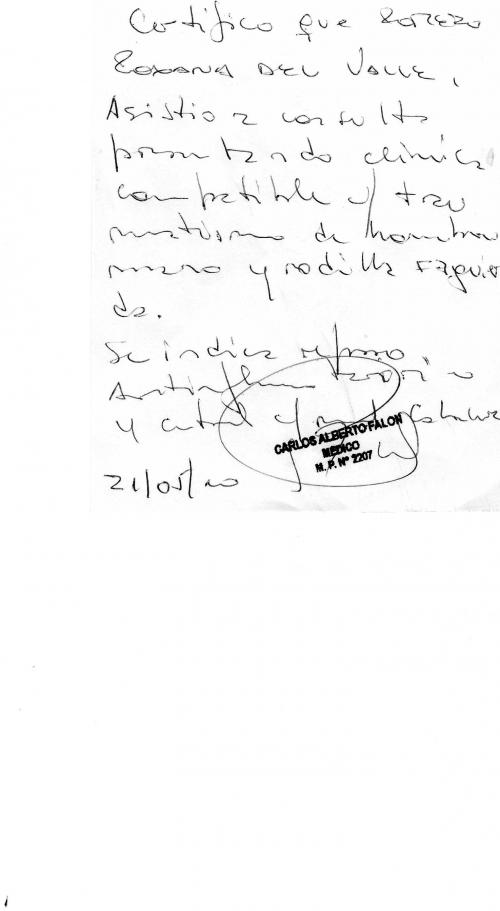 Certifico que
ROXANA DEL VALLE,
Asistio a consulta
presentando clinica
compatible c/ trau
matismo de hombro
mano y rodilla izquier
da.
Se indica reposo,
Antiinflamatorio
y control c/
CARLOS ALBERTO FALON
MEDICO
M. P. N° 2207
21/05/10